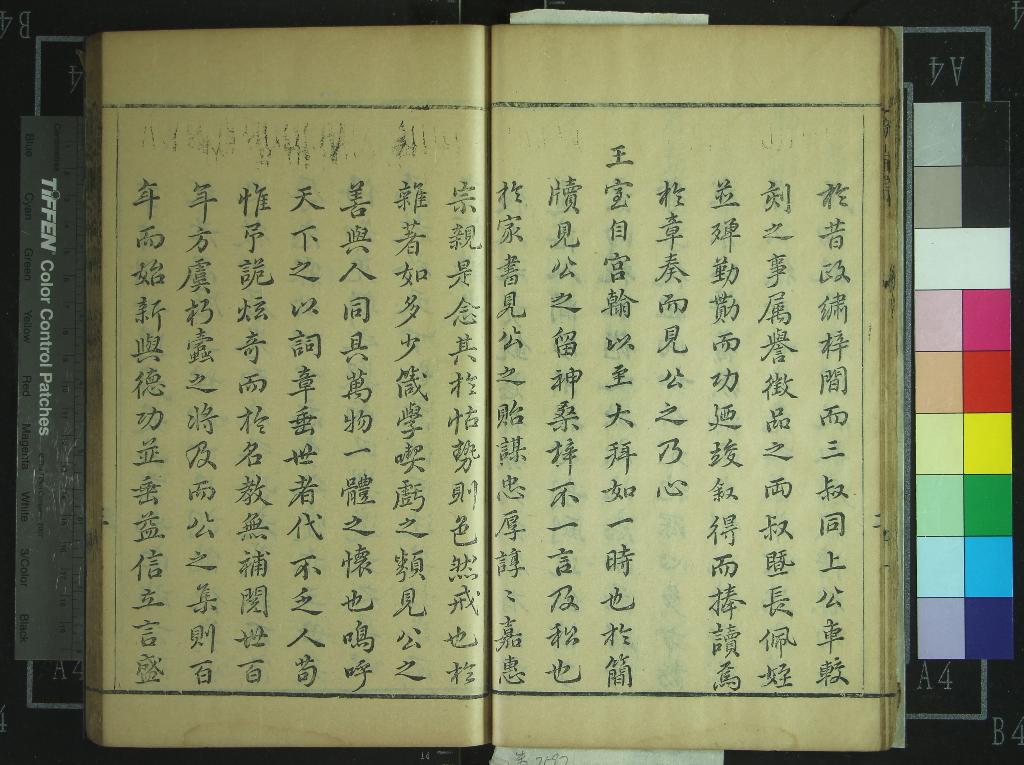 於昔政繡梓間而三叔同上公車較
刻之事属譽徵品之両叔暨長佩姪
並殫勤勩而功廼竣叙得而捧讀焉
於章奏而見公之乃心
王室自宫翰以至大拜如一時也於簡
牘見公之留神桑梓不一言及私也
於家書見公之貽謀忠厚諄〻嘉惠
宗親是念其於怙勢則色然戒也於
雜著如多少箴學喫虧之類見公之
善與人同具萬物一體之懷也嗚呼
天下之以詞章垂世者代不乏人苟
惟吊詭炫奇而於名教無補閱世百
年方虞朽蠹之將及而公之集則百
年而始新與德功並垂益信立言盛
TIFFEN Color Control Patches
Blue Cyan Green Yellow Red Magenta White 3/Color Black
A4
B4